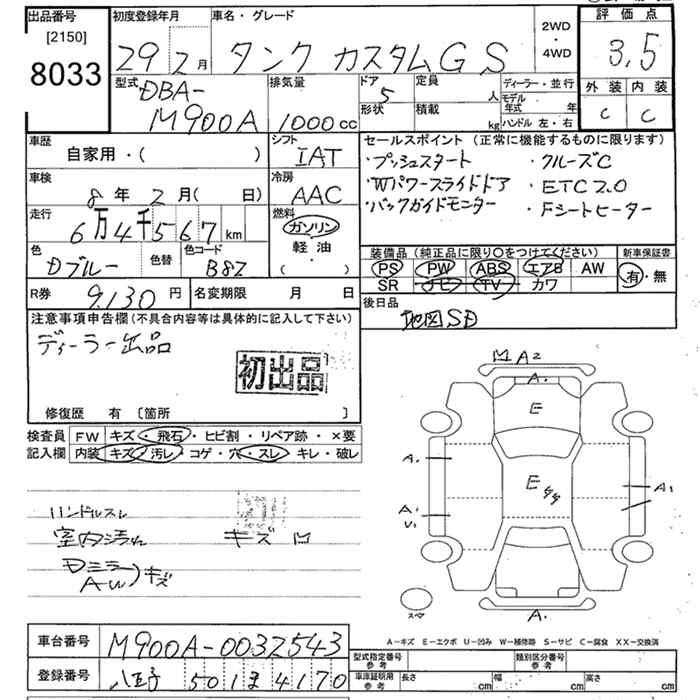 出品番号 初度登録年月 車名・グレード 2WD・4WD 評価点
[2150]
8033 29 2月 タンク カスタムGS 3,5
型式 DBA- M900A 排気量 1000cc ドア 5 定員 人 ディーラー・並行 外装 内装
形状 積載 kg モデル年式 年 ハンドル 左・右 C C
車歴 シフト セールスポイント (正常に機能するものに限ります)
自家用・( ) IAT ・プッシュスタート ・クルーズC
車検 冷房 ・Wパワースライドドア ・ETC2.0
8年 2月( 日) AAC ・バックガイドモニター ・Fシートヒーター
走行 燃料
6万4千567km ガソリン
軽油・
( )
色 色替 色コード 装備品 (純正品に限り○をつけてください) 新車保証書
Dブルー B82 PS PW ABS エアB AW 有・無
SR ナビ TV カワ
R券 9,130円 名変期限 月 日 後日品
地図SD
注意事項申告欄 (不具合内容等は具体的に記入して下さい)
ディーラー出品
初出品
修復歴 有 〔箇所 〕
検査員 FW キズ・飛石・ヒビ割・リペア跡・×要
記入欄 内装 キズ・汚レ・コゲ・穴・スレ・キレ・破レ
ハンドルスレ
室内汚れ キズ凹
Dミラー
AW)キズ
M A2
A.
E
E
A.
A1
A1
U1
スペア
A.
A－キズ E－エクボ U－凹み W－補修跡 S－サビ C－腐食 XX－交換済
車台番号 M900A-0032543 型式指定番号 参考 類別区分番号 参考
登録番号 八王子 501 ま 4170 車庫証明用 参考 長さ cm 幅 cm 高さ cm